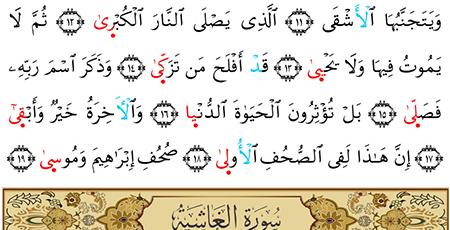 وَيَتَجَنَّبُهَا ٱلْأَشْقَى ﴿١١﴾ ٱلَّذِى يَصْلَى ٱلنَّارَ ٱلْكُبْرَىٰ ﴿١٢﴾ ثُمَّ لَا
يَمُوتُ فِيهَا وَلَا يَحْيَىٰ ﴿١٣﴾ قَدْ أَفْلَحَ مَن تَزَكَّىٰ ﴿١٤﴾ وَذَكَرَ ٱسْمَ رَبِّهِۦ
فَصَلَّىٰ ﴿١٥﴾ بَلْ تُؤْثِرُونَ ٱلْحَيَوٰةَ ٱلدُّنْيَا ﴿١٦﴾ وَٱلْأَخِرَةُ خَيْرٌ وَأَبْقَىٰٓ
﴿١٧﴾ إِنَّ هَٰذَا لَفِى ٱلصُّحُفِ ٱلْأُولَىٰ ﴿١٨﴾ صُحُفِ إِبْرَٰهِيمَ وَمُوسَىٰ ﴿١٩﴾
سُورَةُ الغَاشِيَة